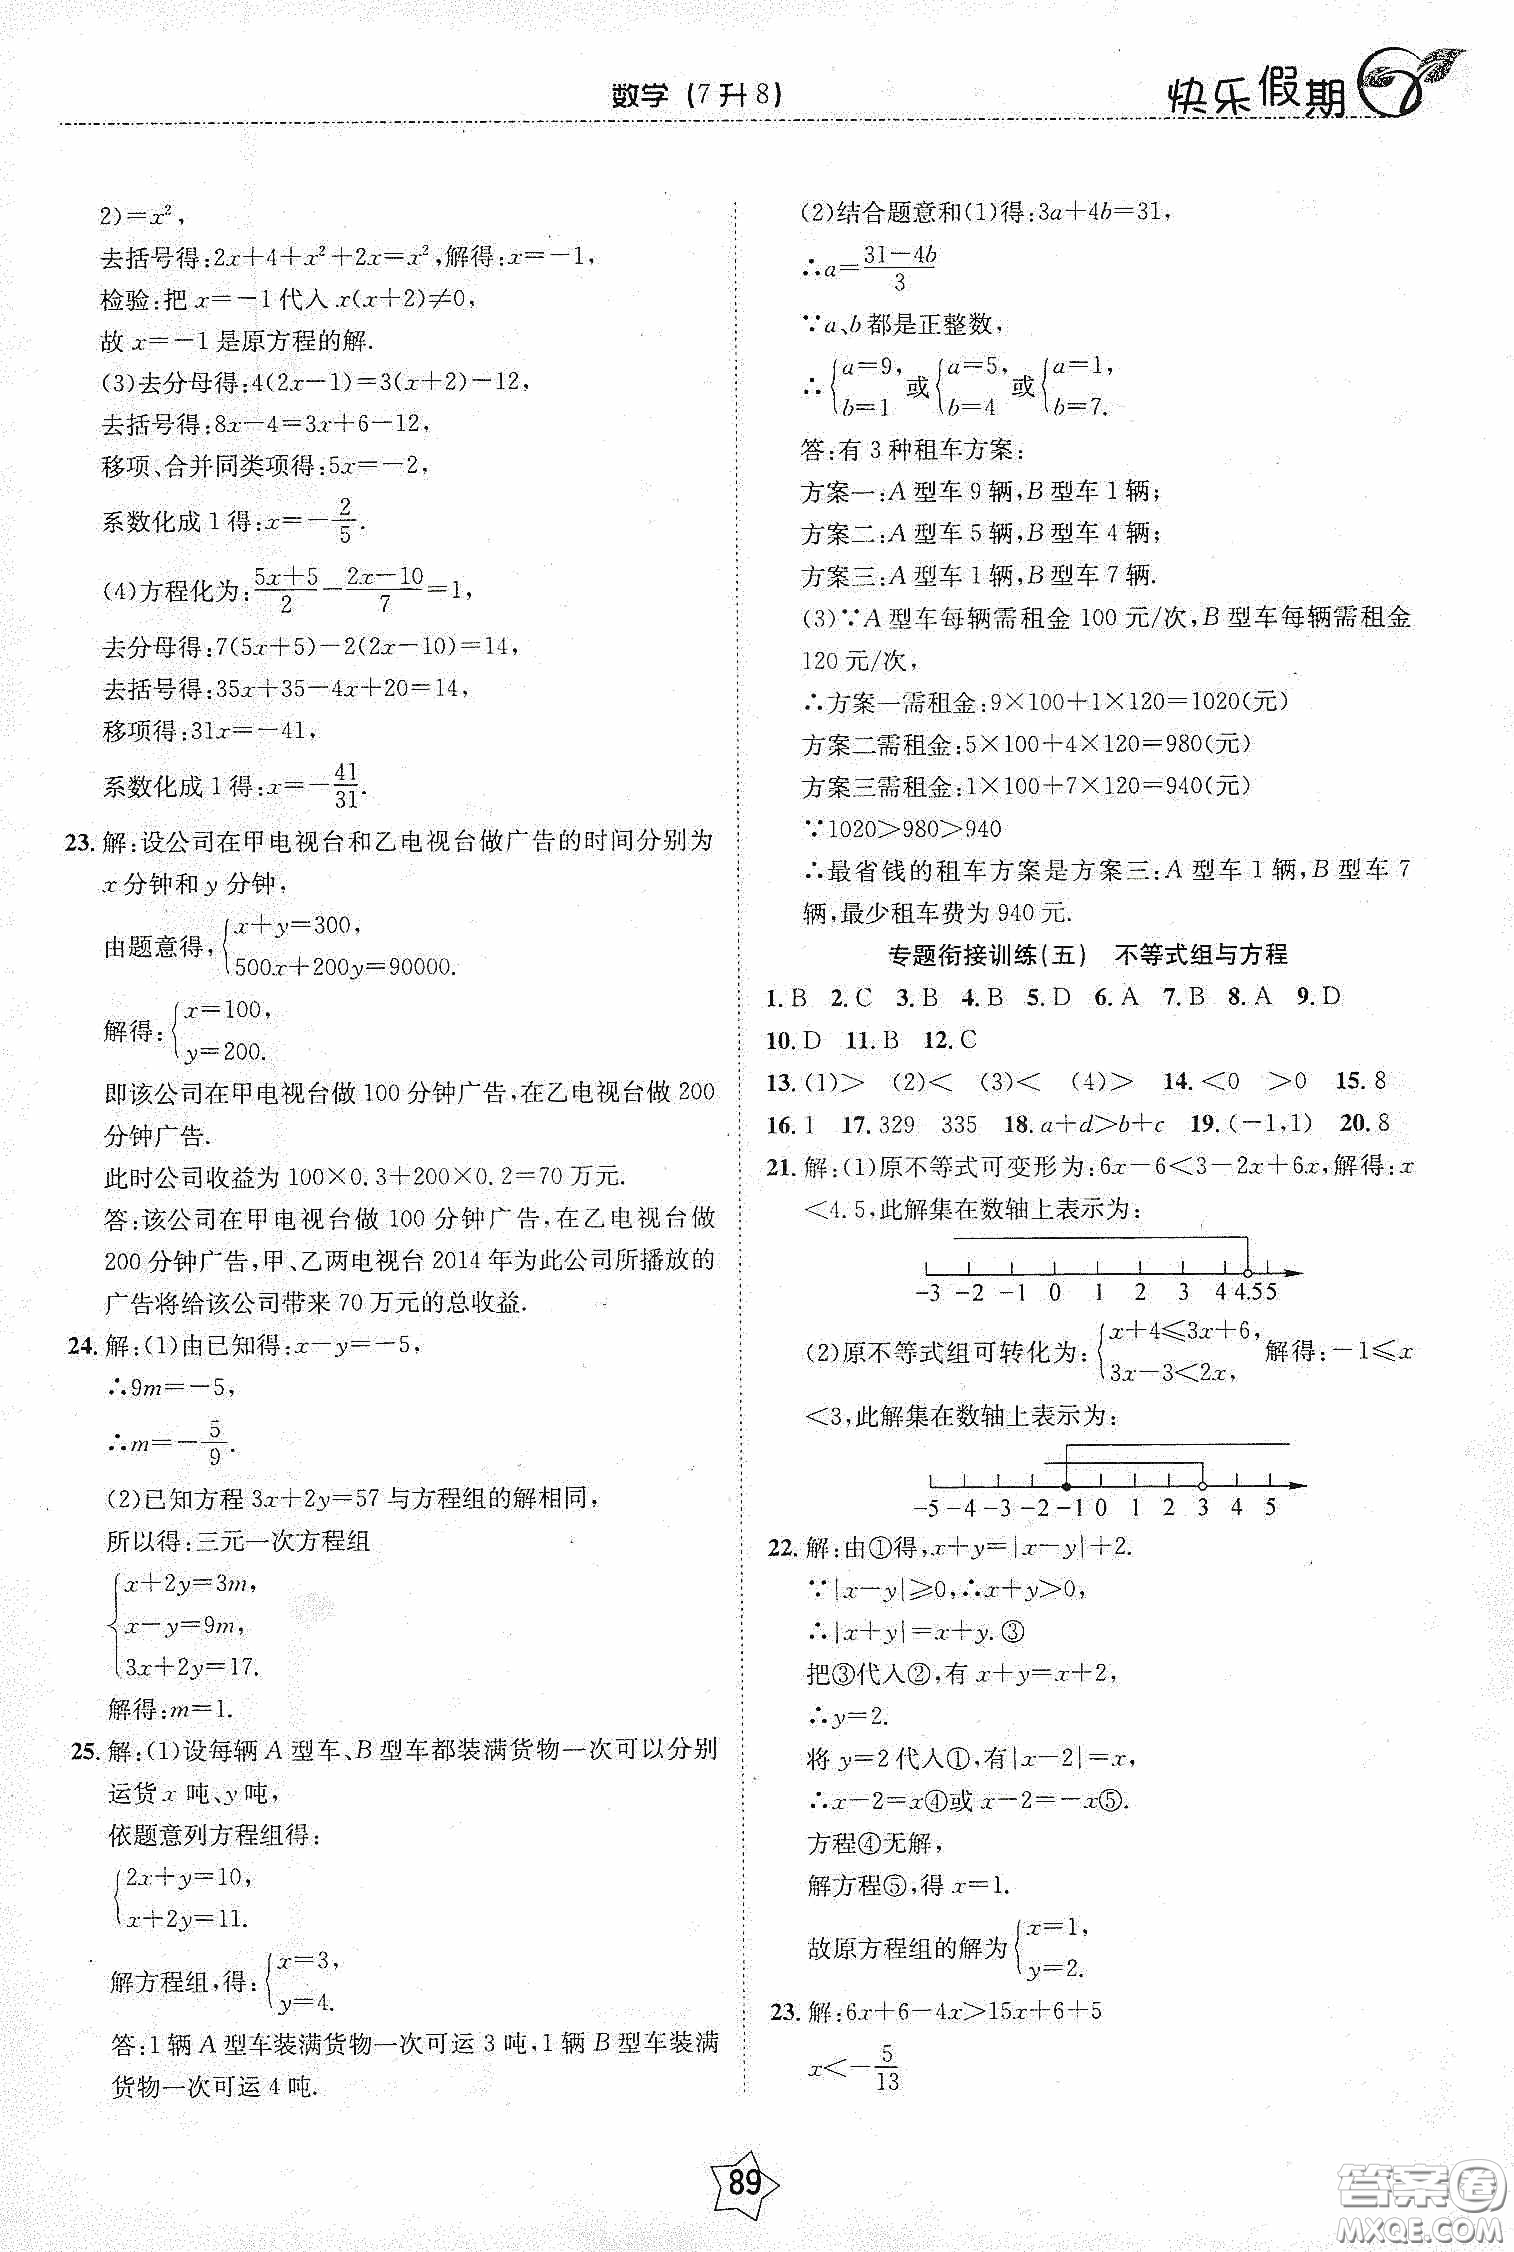 数学(7升8)
快乐假期
2)=x²,
去括号得:2x+4+x²+2x=x²,解得:x=-1,
检验:把 x=-1代入 x(x+2)≠0,
故 x=-1是原方程的解.
(3)去分母得:4(2x-1)=3(x+2)-12,
去括号得:8x-4=3x+6-12,
移项、合并同类项得:5x=-2,
系数化成1得:x=-2/5.
(4)方程化为:(5x+5)/2-(2x-10)/7=1,
去分母得:7(5x+5)-2(2x-10)=14,
去括号得:35x+35-4x+20=14,
移项得:31x=-41,
系数化成1得:x=-41/31.
23. 解:设公司在甲电视台和乙电视台做广告的时间分别为
x分钟和y分钟,
由题意得,{x+y=300,
500x+200y=90000.
解得:{x=100,
y=200.
即该公司在甲电视台做100分钟广告,在乙电视台做200
分钟广告.
此时公司收益为100×0.3+200×0.2=70万元.
答:该公司在甲电视台做100分钟广告,在乙电视台做
200分钟广告,甲、乙两电视台2014年为此公司所播放的
广告将给该公司带来70万元的总收益.
24. 解:(1)由已知得:x-y=-5,
∴9m=-5,
∴m=-5/9.
(2)已知方程3x+2y=57与方程组的解相同,
所以得:三元一次方程组
{x+2y=3m,
x-y=9m,
3x+2y=17.
解得:m=1.
25. 解:(1)设每辆A型车、B型车都装满货物一次可以分别
运货x吨、y吨,
依题意列方程组得:
{2x+y=10,
x+2y=11.
解方程组,得:{x=3,
y=4.
答:1辆A型车装满货物一次可运3吨,1辆B型车装满
货物一次可运4吨.
(2)结合题意和(1)得:3a+4b=31,
∴a=(31-4b)/3
∵a、b都是正整数,
∴{a=9,b=1 或{a=5,b=4 或{a=1,b=7.
答:有3种租车方案:
方案一:A型车9辆,B型车1辆;
方案二:A型车5辆,B型车4辆;
方案三:A型车1辆,B型车7辆.
(3)∵A型车每辆需租金100元/次,B型车每辆需租金
120元/次,
∴方案一需租金:9×100+1×120=1020(元)
方案二需租金:5×100+4×120=980(元)
方案三需租金:1×100+7×120=940(元)
∵1020>980>940
∴最省钱的租车方案是方案三:A型车1辆,B型车7
辆,最少租车费为940元.
专题衔接训练(五) 不等式组与方程
1.B 2.C 3.B 4.B 5.D 6.A 7.B 8.A 9.D
10.D 11.B 12.C
13.(1)> (2)< (3)< (4)> 14.<0 >0 15.8
16.1 17.329 335 18.a+d>b+c 19.(-1,1) 20.8
21. 解:(1)原不等式可变形为:6x-6<3-2x+6x,解得:x
<4.5,此解集在数轴上表示为:
-3 -2 -1 0 1 2 3 4 4.5 5
(2)原不等式组可转化为:{x+4≤3x+6,
3x-3<2x, 解得:-1≤x
<3,此解集在数轴上表示为:
-5 -4 -3 -2 -1 0 1 2 3 4 5
22. 解:由①得,x+y=|x-y|+2.
∵|x-y|≥0,∴x+y>0,
∴|x+y|=x+y.③
把③代入②,有x+y=x+2,
∴y=2.
将y=2代入①,有|x-2|=x,
∴x-2=x④或x-2=-x⑤.
方程④无解,
解方程⑤,得x=1.
故原方程组的解为{x=1,
y=2.
23. 解:6x+6-4x>15x+6+5
x<-5/13
89
答案圈
MXQE.COM